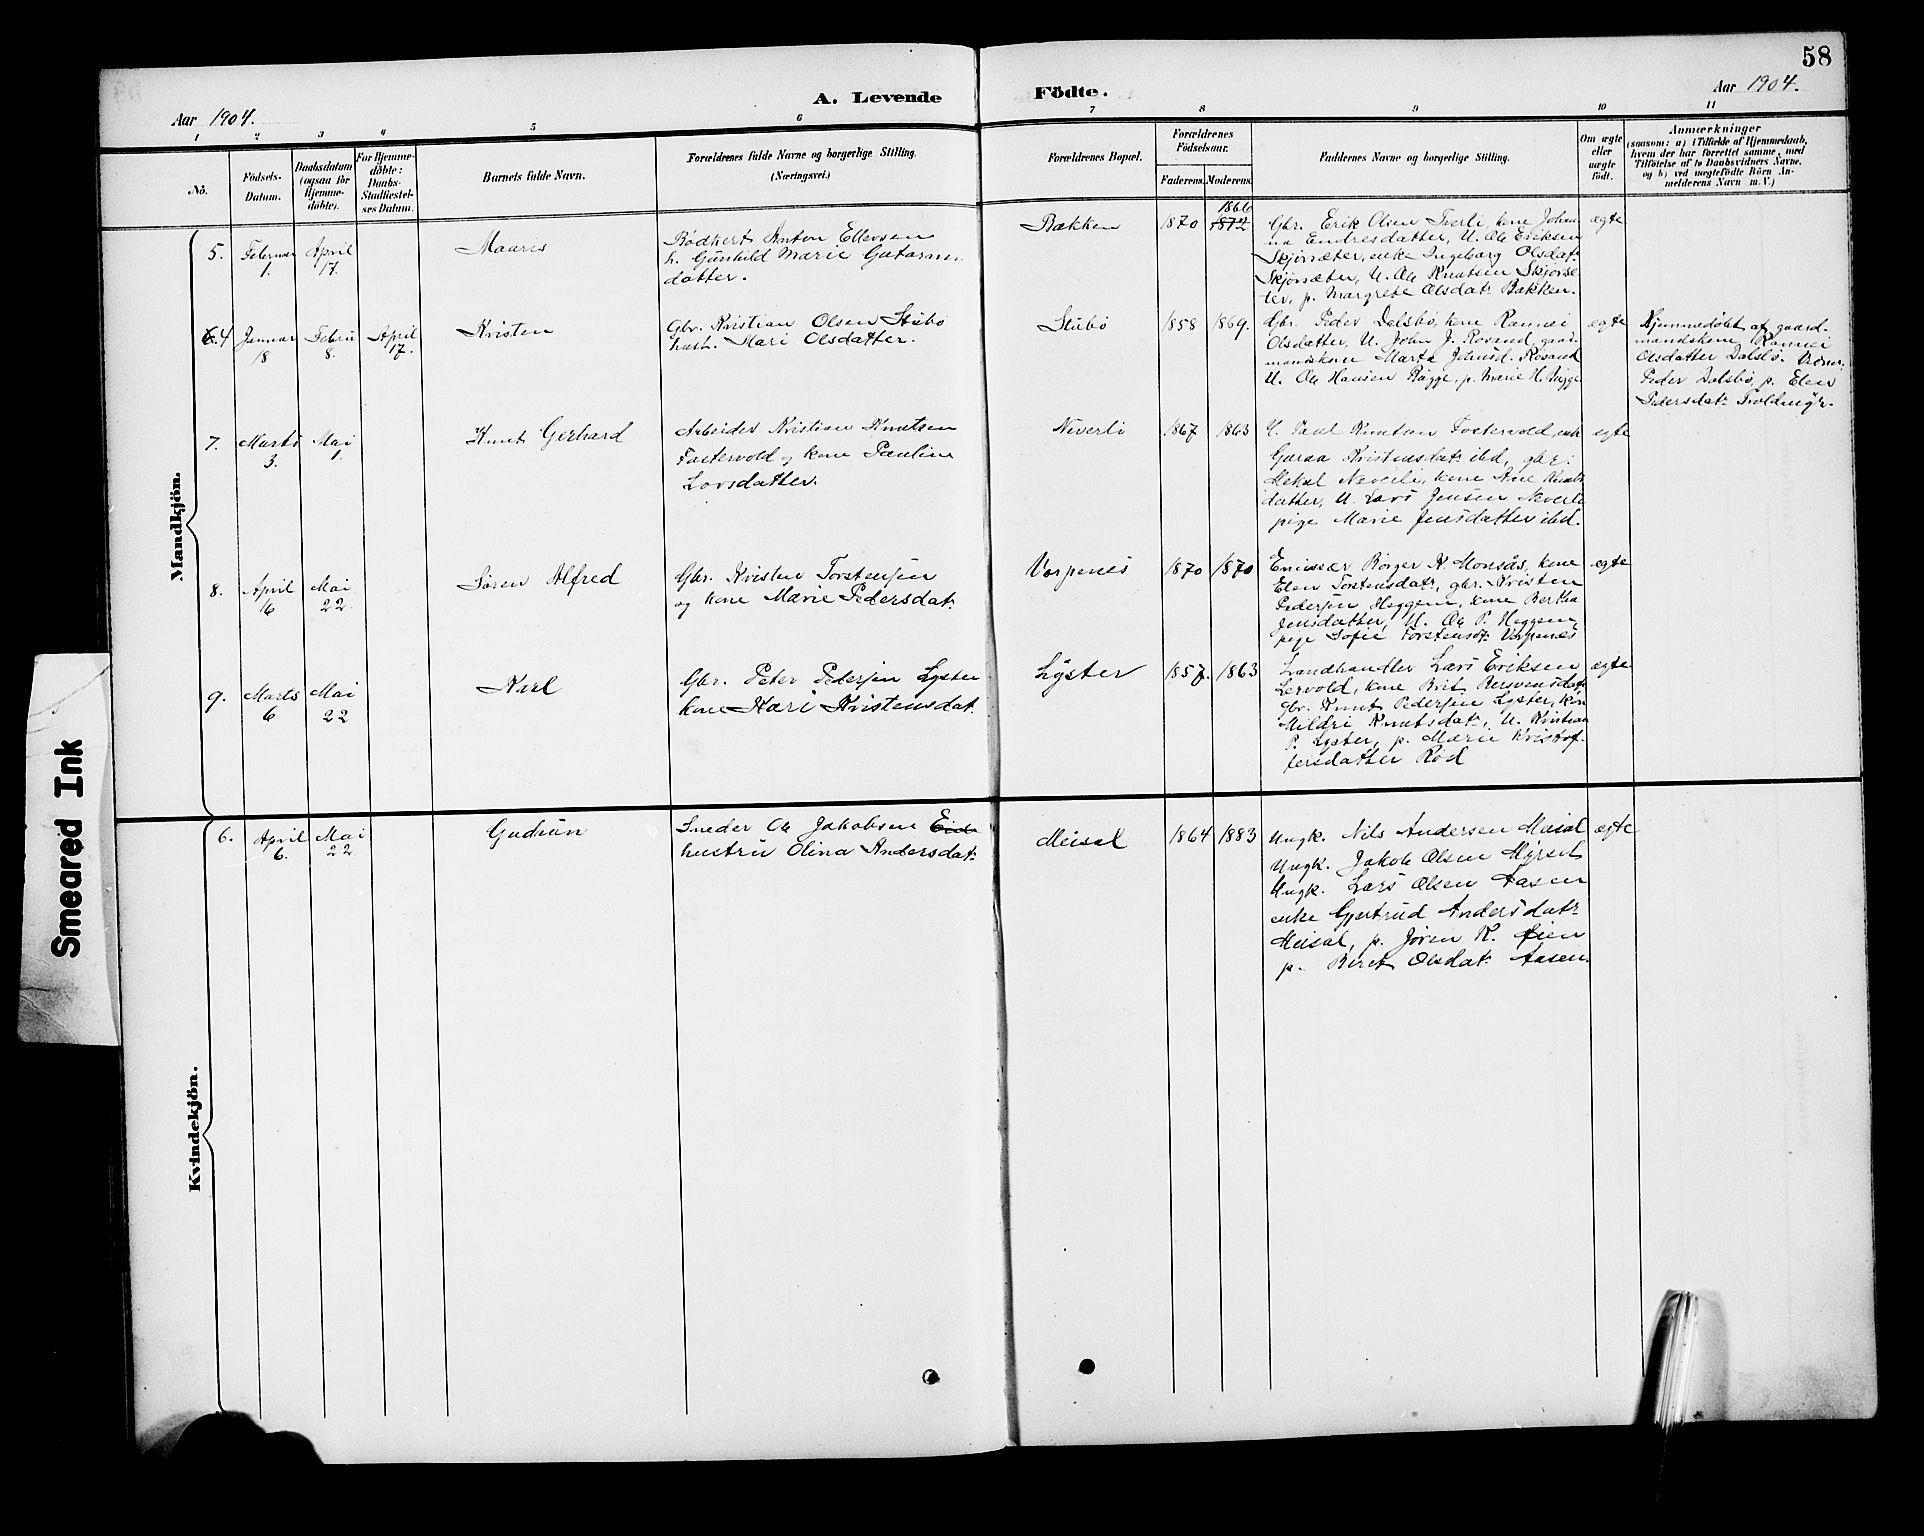 58
A. Levende Födte.
Aar 1904.
Aar 1904.
1 2 3 4 5 6 7 8 9 10 11
No.
Födsels-
Datum.
Daabsdatum
(ogsaa för
Hjemme-
döbte).
For Hjemme-
döbte:
Daabs-
Stadfæstel-
ses Datum.
Barnets fulde Navn.
Forældrenes fulde Navne og borgerlige Stilling.
(Næringsvei.)
Forældrenes Bopæl.
Forældrenes
Födselsaar.
Faderens. Moderens.
Faddernes Navne og borgerlige Stilling.
Om ægte
eller
uægte
födt.
Anmærkninger
(saasom: a) i Tilfælde af Hjemmedaab,
hvem der har forrettet samme, med
Tilföielse af to Daabsvidners Navne,
og b) ved uægtefödte Börn An-
melderens Navn m.V.)
Mandkjön.
5.
Februar
1.
April
17.
Mauris
Rødkert Anton Ellevsen
h. Gunhild Marie Gutorms-
datter.
Bakken
1870
1866
1872
Gbr. Erik Olsen Tverli, kone Johan-
na Endresdatter, U. Ole Eriksen
Skjørsæter, enke Ingeborg Olsdatr
Skjørsæter, U. Ole Knutsen Skjørsæ-
ter, p. Margrete Olsdatr Bakken.
ægte
6.4
Januar
18
Febru
8.
April
17.
Kristen
Gbr. Kristian Olsen Stubø
hust. Mari Olsdatter.
Stubø
1858
1869.
Gbr. Peder Dalsbø, kone Rannei
Olsdatter, U. John J. Røsand, gaard-
mandskone Marta Johnsd. Røsand
U. Ole Hansen Bugge, p. Marie H. Bugge
ægte
Hjemmedøbt af gaard-
mandskone Rannei
Olsdatter Dalsbø. Vidner:
Peder Dalsbø, p. Elen
Pedersdatr Troldmyr.
7.
Marts
3.
Mai
1.
Knut Gerhard
Arbeider Kristian Knutsen
Fostervold og kone Pauline
Larsdatter.
Neverli
1867
1863
U. Paul Knutsen Fostervold, enke
Guraa Kristensdatr ibd, gbr.
Mekal Neverli, kone Ane Knuts-
datter, U. Lars Jensen Neverli
pige Marie Jensdatter ibd.
ægte
8.
April
16
Mai
22.
Søren Alfred
Gbr. Kristen Torstensen
og kone Marie Pedersdatr
Vorpenes
1870
1870
Emissær Børger H. Monsås, kone
Elen Torstensdatr, gbr. Kristen
Pedersen Heggem, kone Bertha
Jensdatter, U. Ole P. Heggem,
pige Sofie Torstensdr Vorpenes
ægte
9.
Marts
6
Mai
22
Karl
Gbr. Peter Pedersen Lyster
kone Kari Kristensdat.
Lyster
1857.
1863
Landhandler Lars Eriksen
Lervold, kone Brit
gbr. Knut Pedersen Lyster, kon
Mildri Knutsdatr, U. Kristian
P. Lyster, p. Marie Kristof-
fersdatter Rød
ægte
Kvindekjön.
6.
April
6.
Mai
22
Gudrun
Smeder Ole Jakobsen Eide
hustru Olina Andersdatr
Meisal
1864
1883
Ungk. Nils Andersen Meisal
Ungk. Jakob Olsen Myrset
Ungk. Lars Olsen Aasen
enke Gjertrud Andersdatr
Meisal, p. Jøren K. Øien
p. Beret Olsdatr Aasen.
ægte
Smeared Ink